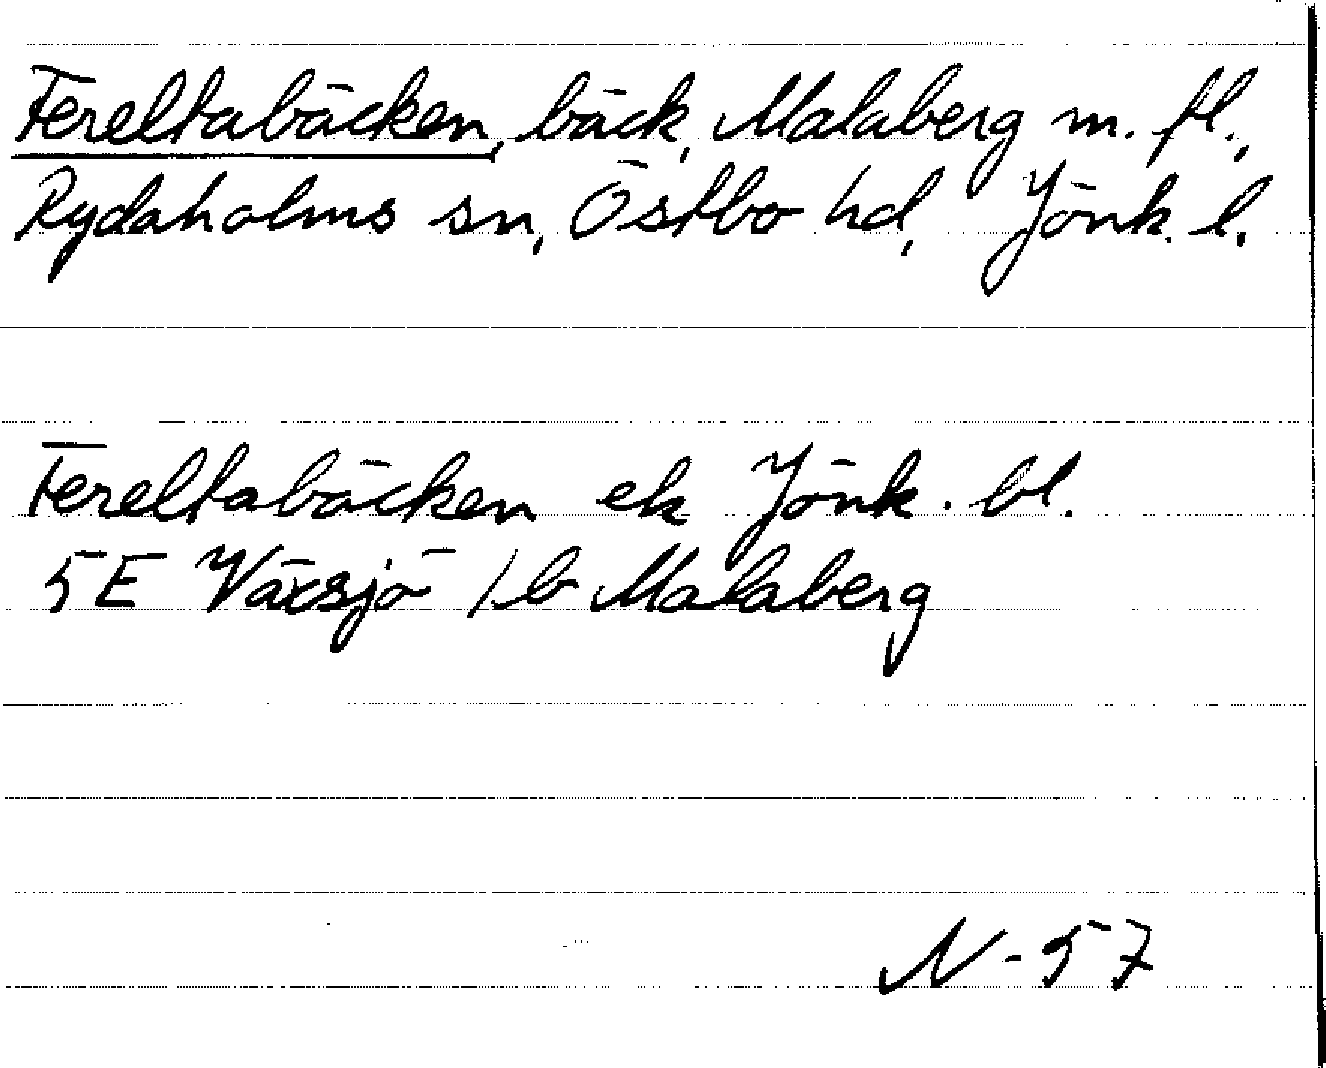 Fereltabäcken, bäck, Malaberg m. fl.,
Rydaholms sn, Östbo hd, Jönk. l.
Fereltabäcken ek Jönk. bl.
5E Växsjö /b Malaberg
N-57